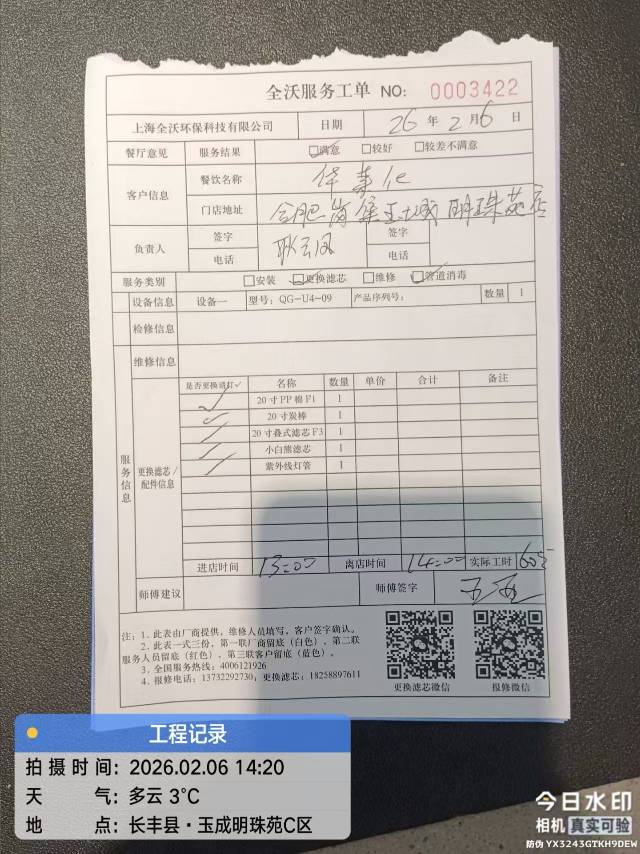 全沃服务工单 NO: 0003422
上海全沃环保科技有限公司 日期 26 年 2 月 6 日
餐厅意见 服务结果 ☑满意 □较好 □较差不满意
客户信息 餐饮名称 华莱仕
门店地址 合肥岗集玉城明珠苑店
负责人 签字 耿云凤 签字
电话 电话
服务类别 □安装 ☑更换滤芯 □维修 ☑管道消毒
设备信息 设备一 型号: QG-U4-09 产品序列号: 数量 1
检修信息
维修信息
服务信息
更换滤芯/配件信息
是否更换请打✓ 名称 数量 单价 合计 备注
✓ 20寸PP棉F1 1
✓ 20寸炭棒 1
✓ 20寸叠式滤芯F3 1
✓ 小白熊滤芯 1
✓ 紫外线灯管 1
进店时间 13:00 离店时间 14:00 实际工时 60分
师傅建议 师傅签字
注: 1、此表由厂商提供, 维修人员填写, 客户签字确认。
2、此表一式三份, 第一联厂商留底(白色), 第二联
服务人员留底(红色), 第三联客户留底(蓝色)。
3、全国服务热线: 4006121926
4、报修电话: 13732292730; 更换滤芯: 18258897611
更换滤芯微信 报修微信
工程记录
拍摄时间: 2026.02.06 14:20
天 气: 多云 3℃
地 点: 长丰县·玉成明珠苑C区
今日水印
相机 真实可验
防伪 YX3243GTKH9DEW